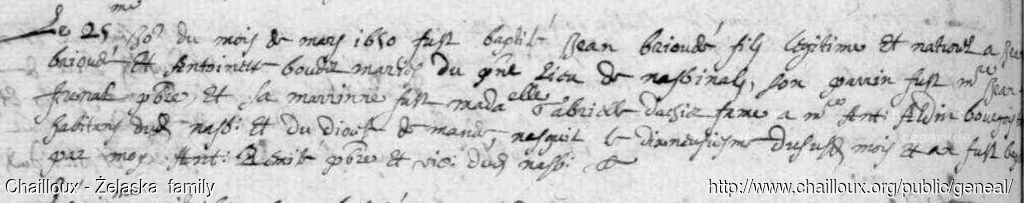 Le 25me jour du mois de mars 1650 fust baptisé Jean brioudé fils legitime et naturel a Jean
brioudé et Antoinette boudet mariés du pnt lieu de nasbinals, son parrin fust mre Jean
pbre, et la marrinne fust madalle Gabrielle fame a mre Anti Aldin bourgois
habitans dud nasbi et du diocese de mande nasquit le dixneufiesme dususd mois et an fust bap
par moy Anti pbre et vici dud nasbi
Chailloux - Żelaska family
http://www.chailloux.org/public/geneal/